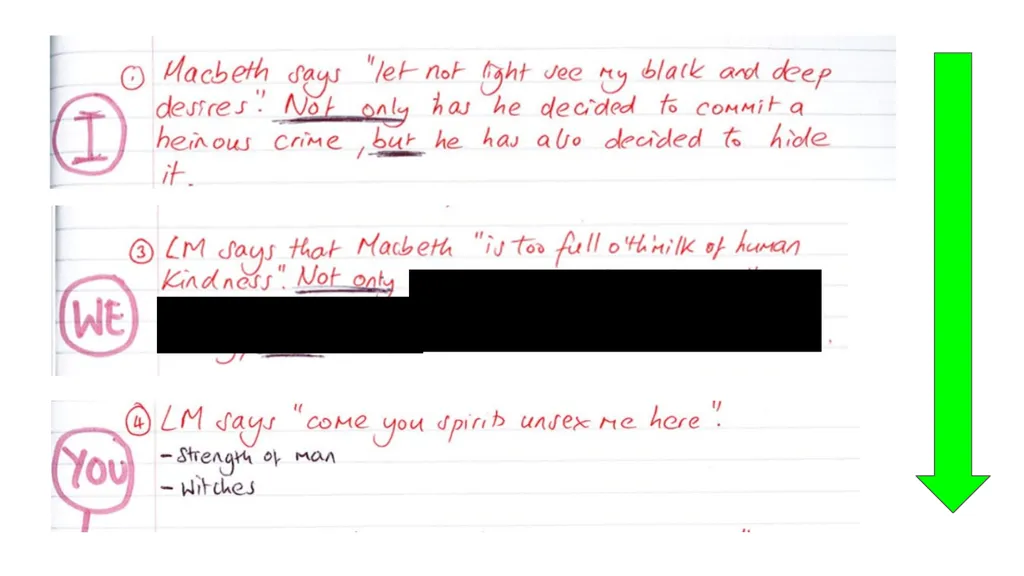 ① Macbeth says "let not light see my black and deep
desires". Not only has he decided to commit a
heinous crime, but he has also decided to hide
it.
I
③ LM says that Macbeth "is too full o'th'milk of human
kindness". Not only
WE
④ LM says "come you spirits unsex me here".
- Strength of man
- Witches
YOU